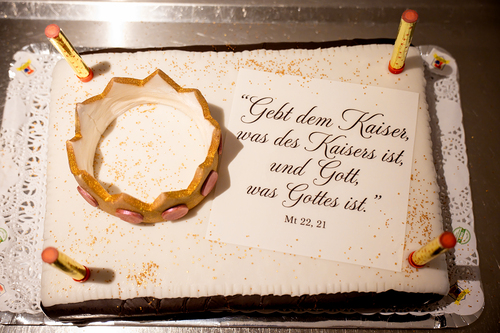 “Gebt dem Kaiser,
was des Kaisers ist,
und Gott,
was Gottes ist.”
Mt 22, 21